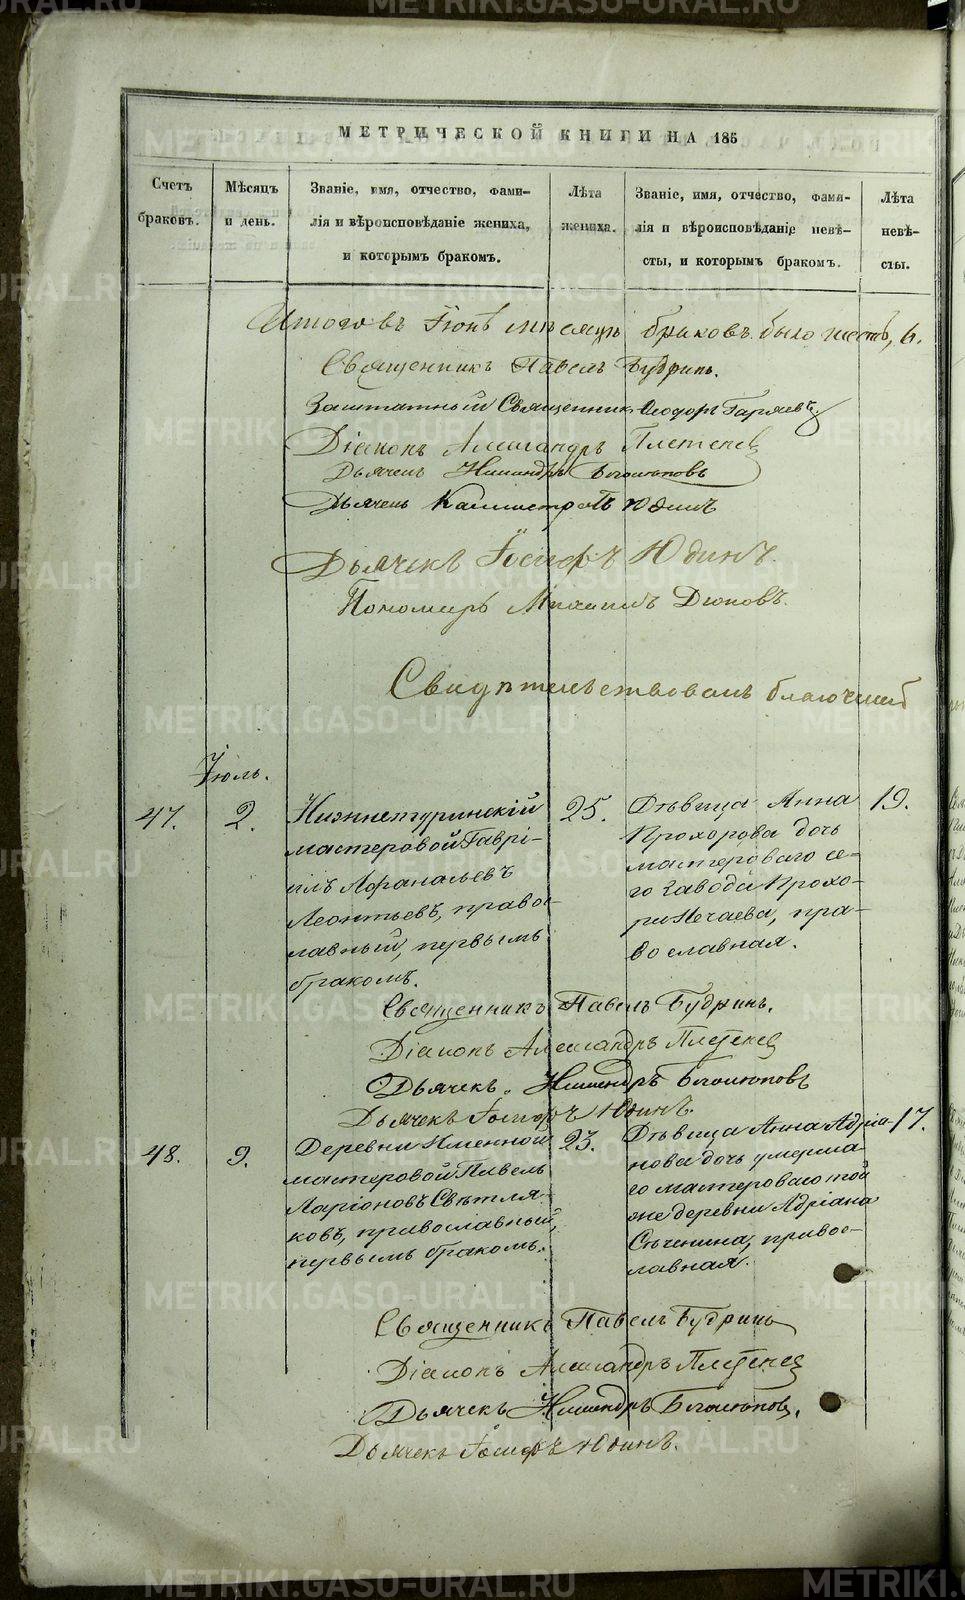 МЕТРИЧЕСКОЙ КНИГИ НА 185
Счетъ браковъ.
Мѣсяцъ и день.
Званіе, имя, отчество, фами-
лія и вѣроисповѣданіе жениха,
и которымъ бракомъ.
Лѣта жениха.
Званіе, имя, отчество, фами-
лія и вѣроисповѣданіе невѣ-
сты, и которымъ бракомъ.
Лѣта невѣ-
сты.
Итого въ Іюнѣ мѣсяцѣ браковъ было шесть, 6.
Священникъ Павелъ Будринъ.
Заштатный Священникъ Ѳеодоръ Гаряевъ.
Діаконъ Александръ Плетенев
Дьячекъ Никандръ Боголюповъ
Дьячекъ Каллистратъ Юдинъ
Дьячекъ Іосифъ Юдинъ.
Пономарь Михаилъ Дюповъ.
Свидѣтельствовалъ благочинный
Іюль.
47.
2.
Нижнетуринскій
мастеровой Гаврі-
илъ Афанасьевъ
Леонтьевъ, правос-
лавный, первымъ
бракомъ.
25.
Дѣвица Анна
Прохорова дочь
мастероваго се-
го завода Прохо-
ра Нечаева, пра-
вославная.
19.
Священникъ Павелъ Будринъ.
Діаконъ Александръ Плетенев
Дьячекъ Никандръ Боголюповъ
Дьячекъ Іосифъ Юдинъ.
48.
9.
Деревни Именной
мастеровой Павелъ
Ларіоновъ Свѣтля-
ковъ, православный,
первымъ бракомъ.
23.
Дѣвица Анна Адріа-
нова дочь умерша-
го мастероваго той
же деревни Адріана
Сѣченина, правос-
лавная.
17.
Священникъ Павелъ Будринъ
Діаконъ Александръ Плетенев
Дьячекъ Никандръ Боголюповъ.
Дьячекъ Іосифъ Юдинъ.
METRIKI.GASO-URAL.RU